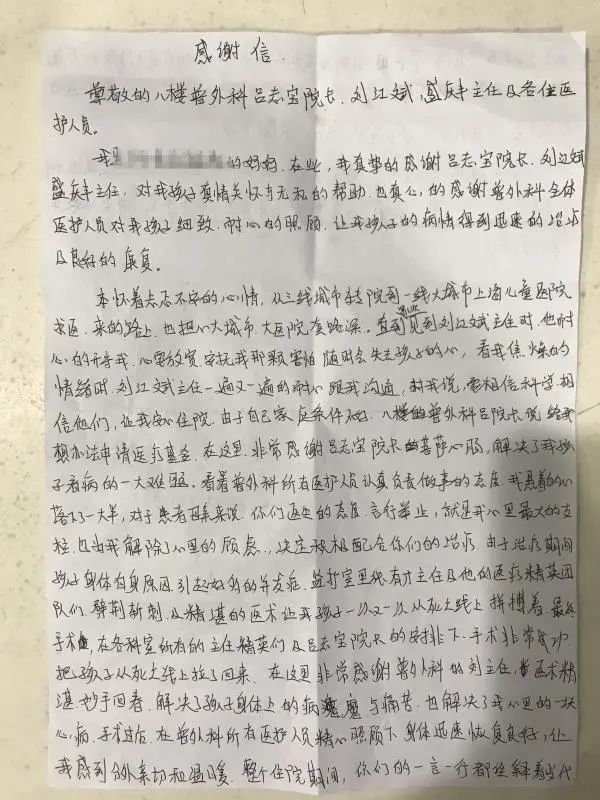 感谢信
尊敬的八楼普外科吕志宝院长、刘江斌,盛庆丰主任及各位医
护人员。
我是 的妈妈,在此,我真挚的感谢吕志宝院长,刘江斌
盛庆丰主任,对我孩子真情关怀与无私的帮助,也真心的感谢普外科全体
医护人员对我孩子细致,耐心的照顾,让我孩子的病情得到迅速的治疗
及良好的康复。
本怀着忐忑不安的心情,从三线城市转院到一线大城市上海儿童医院
求医,来的路上,也担心大城市,大医院套路深。直到见到刘江斌主任时,他耐
心的开导我,心要放宽,安抚我那颗害怕随时会失去孩子的心,看我焦燥的
情绪时,刘江斌主任一遍又一遍的耐心跟我沟通,对我说,要相信科学,相
信他们,让我安心住院。由于自己家庭条件 ,八楼的普外科吕院长说给我
想办法申请医疗基金。在这里,非常感谢吕志宝院长的菩萨心肠,解决了我孩
子看病的一大难题。看着普外科所有医护人员认真负责做事的态度,我悬着的心
落下了一大半,对于患者母亲来说,你们医生的态度,言行举止,就是我心里最大的支
柱,也由我解除了心里的顾虑,决定积极配合你们的治疗。由于治疗期间
孩子身体自身原因,引起好多的并发症,监护室里 主任及他的医疗精英团
队们,劈荆斩刺,及精湛的医术让我孩子一次又一次从死亡线上拼搏着,最终
手术,在各科室所有的主任精英们及吕志宝院长的安排下,手术非常成功,
把孩子从死亡线上拉了回来。在这里非常感谢普外科的刘主任,医术精
湛,妙手回春,解决了孩子身体上的病魔与痛苦,也解决了我心里的一块
心病,手术过后,在普外科所有医护人员精心照顾下,身体迅速恢复良好,让
我感到分外亲切和温暖。整个住院期间,你们的一言一行都诠释着当代